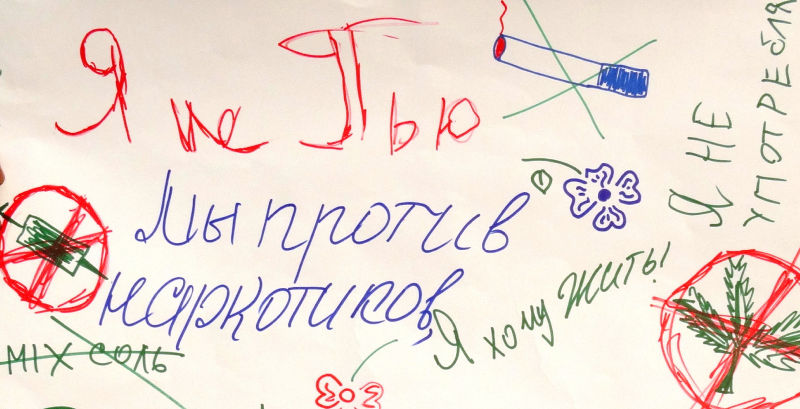 Я не Пью
Я НЕ
УПОТРЕБЛЯ
Мы против
наркотиков,
Я хочу ЖИТЬ!
MIX СОЛЬ